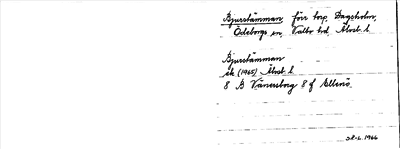 Bjursstämman förr torp, Dagsholm,
Ödeborgs sn, Valbo hd, Älvsb. l.
Bjursstämman
ek (1965) Älvsb. l.
8 B Vänersborg 8 f Ellenö.
28.6.1966